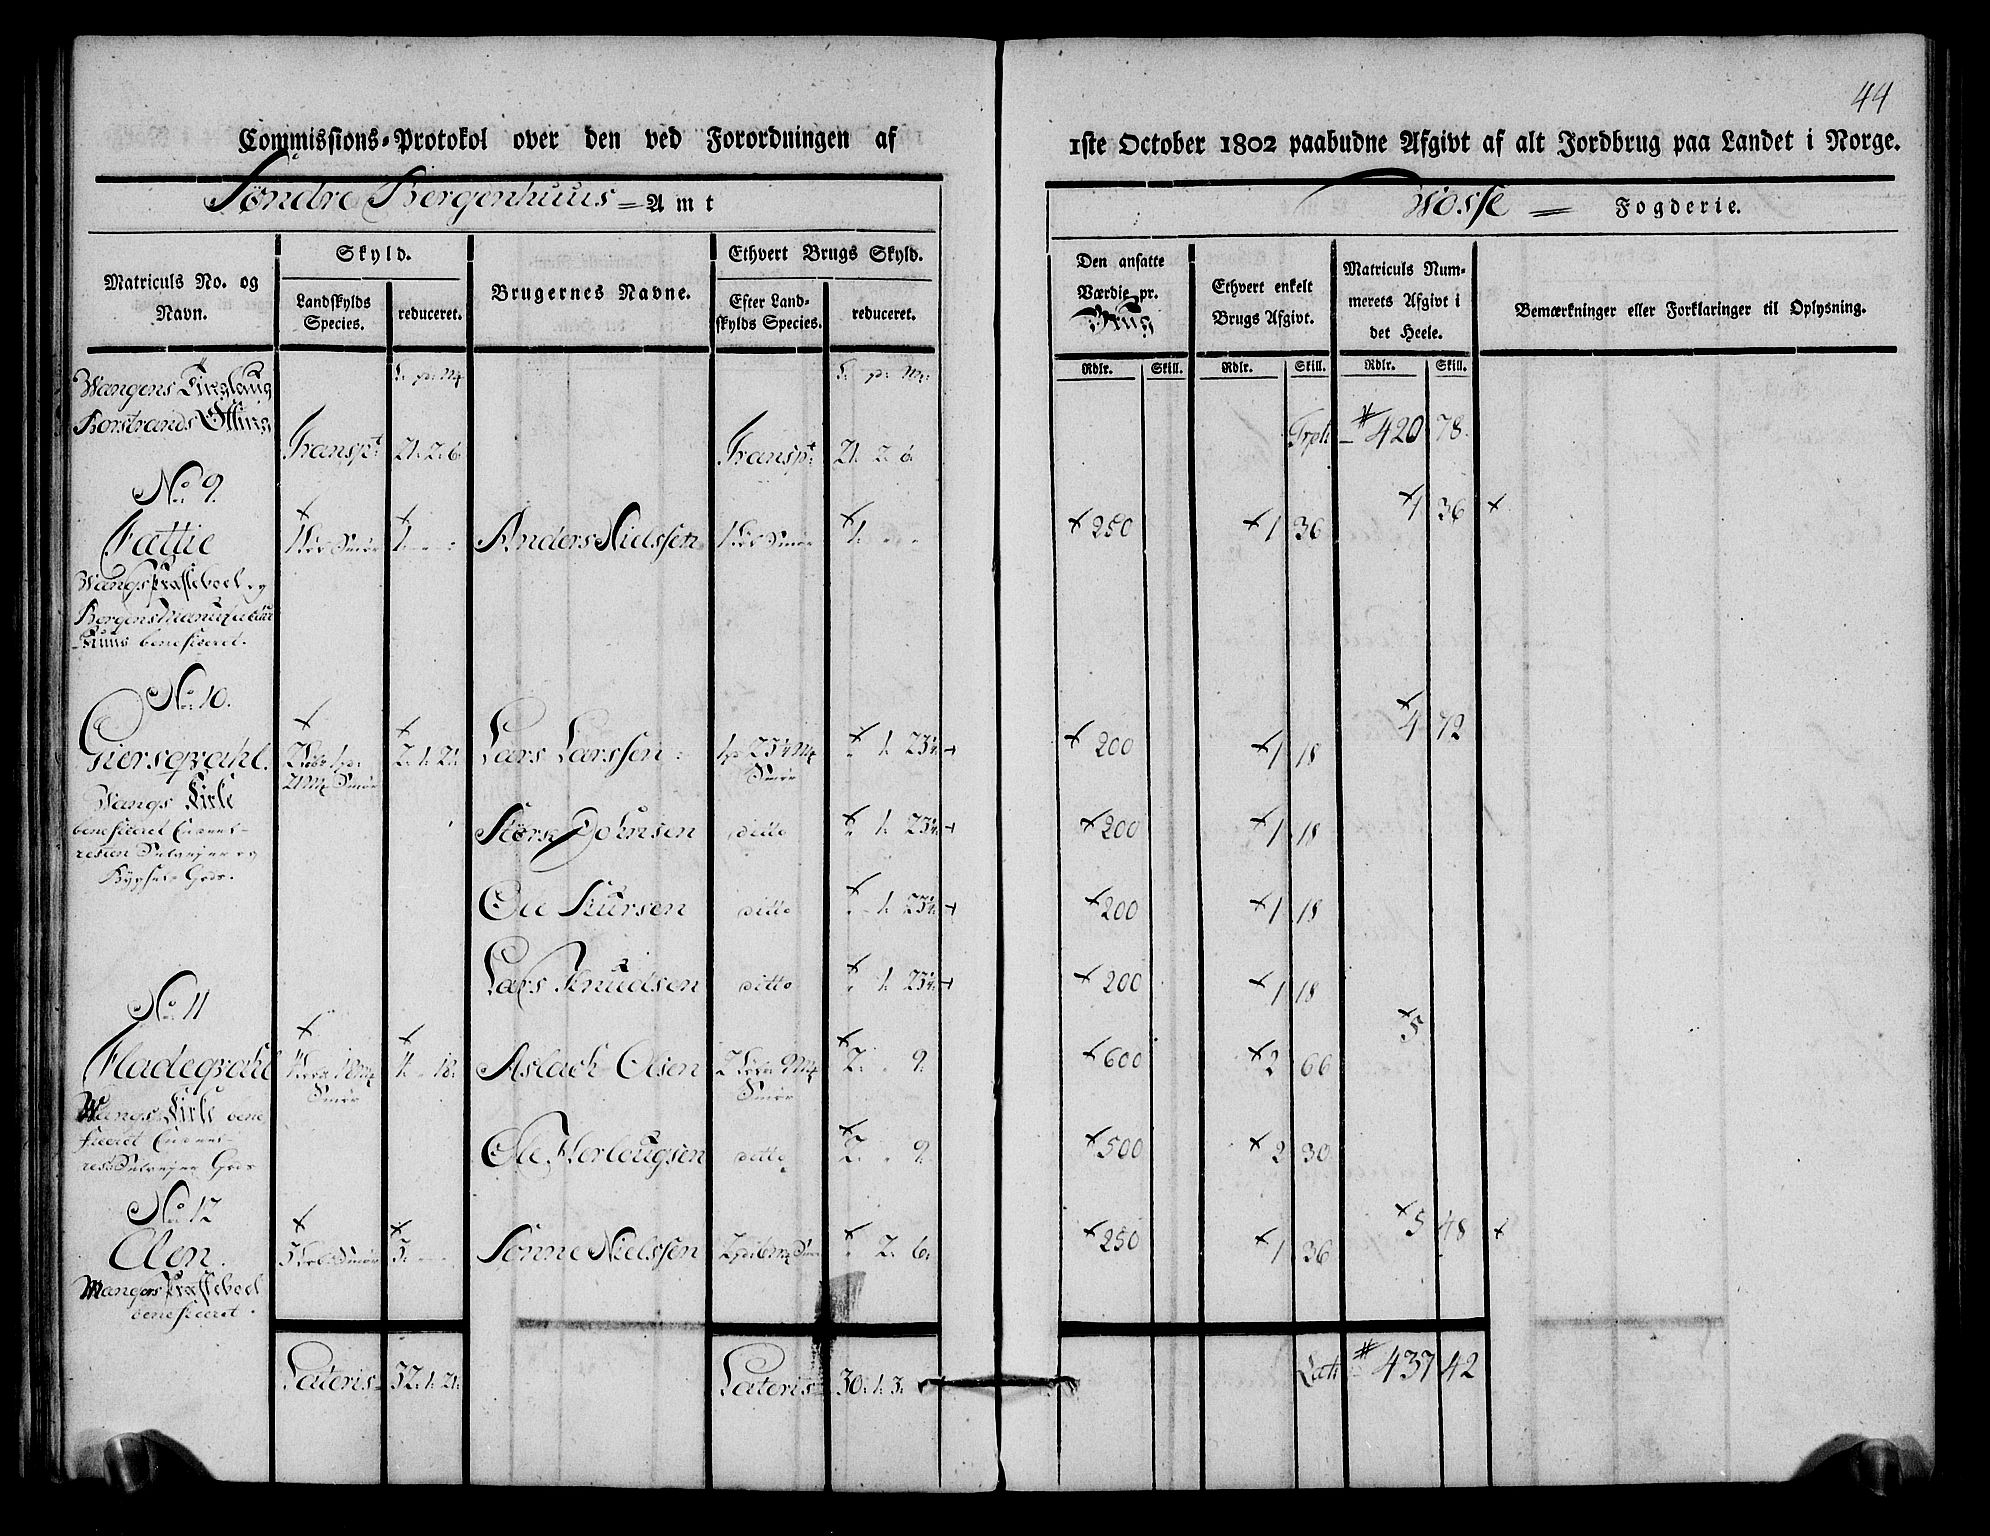 44
Commissions-Protokol over den ved Forordningen af 1ste October 1802 paabudne Afgivt af alt Jordbrug paa Landet i Norge.
Søndre Bergenhuus Amt
Wosse Fogderie.
Matriculs No. og Navn.
Skyld.
Landskylds Species.
reduceret.
Brugernes Navne.
Ethvert Brugs Skyld.
Efter Landskylds Species.
reduceret.
Den ansatte Værdie pr.
Ethvert enkelt Brugs Afgivt.
Matriculs Nummerets Afgivt i det Heele.
Bemærkninger eller Forklaringer til Oplysning.
Rdlr. Skill. Rdlr. Skill. Rdlr. Skill.
Wangens Tinglaug
Borstrands Otting
Transpt 21. 2. 6. Transpt 21. 2. 6. Trpt 420 78.
No 9.
Fattie 1 Løb Smør 1. Anders Nielssen 1 Løb Smør 1. 250 1 36 1 36
Wangs Præsteboel og
Bergens Manufactur
Huus beneficeret.
No 10.
Giersqvahl. 2. 1. 21. Lars Larssen 1. 23½. 200 1 18 4 72
21 mk Smør Smør
Wangs Kirke
beneficeret
Johnsen ditto 1. 23½. 200 1 18
Bygsels Gods.
Ole Sjursen ditto 1. 23½. 200 1 18
Lars Knudsen ditto 1. 23½. 200 1 18
No 11
Fladeqvahl 4. 18. Aslach Olsen 2. 9. 600 2 66 5
Smør Smør
Wangs Kirke bene
ficeret
Ole Herlougsen ditto 2. 9. 500 2 30
No 12
Olen. 5 Løb Smør 5. Sønne Nielssen 2. 6. 250 1 36 5 48
Wangens Præsteboel
beneficeret.
Lateris 32. 1. 21. Lateris 30. 1. 3. Lat 437 42